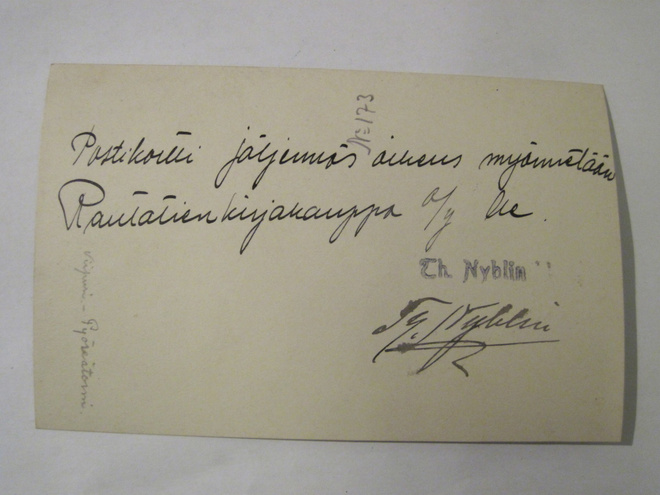 No 173
Postikortti jäljennös oikeus myönnetään
Rautatienkirjakauppa o/y lle.
Th. Nyblin
Th. Nyblin
Viipuri - Pyöreätorni.